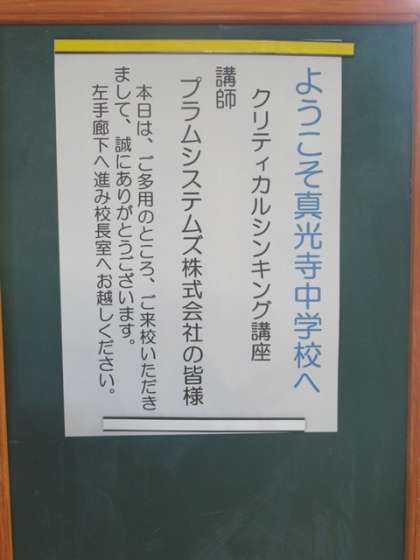 ようこそ真光寺中学校へ
クリティカルシンキング講座
講師
プラムシステムズ株式会社の皆様
本日は、ご多用のところ、ご来校いただき
まして、誠にありがとうございます。
左手廊下へ進み校長室へお越しください。